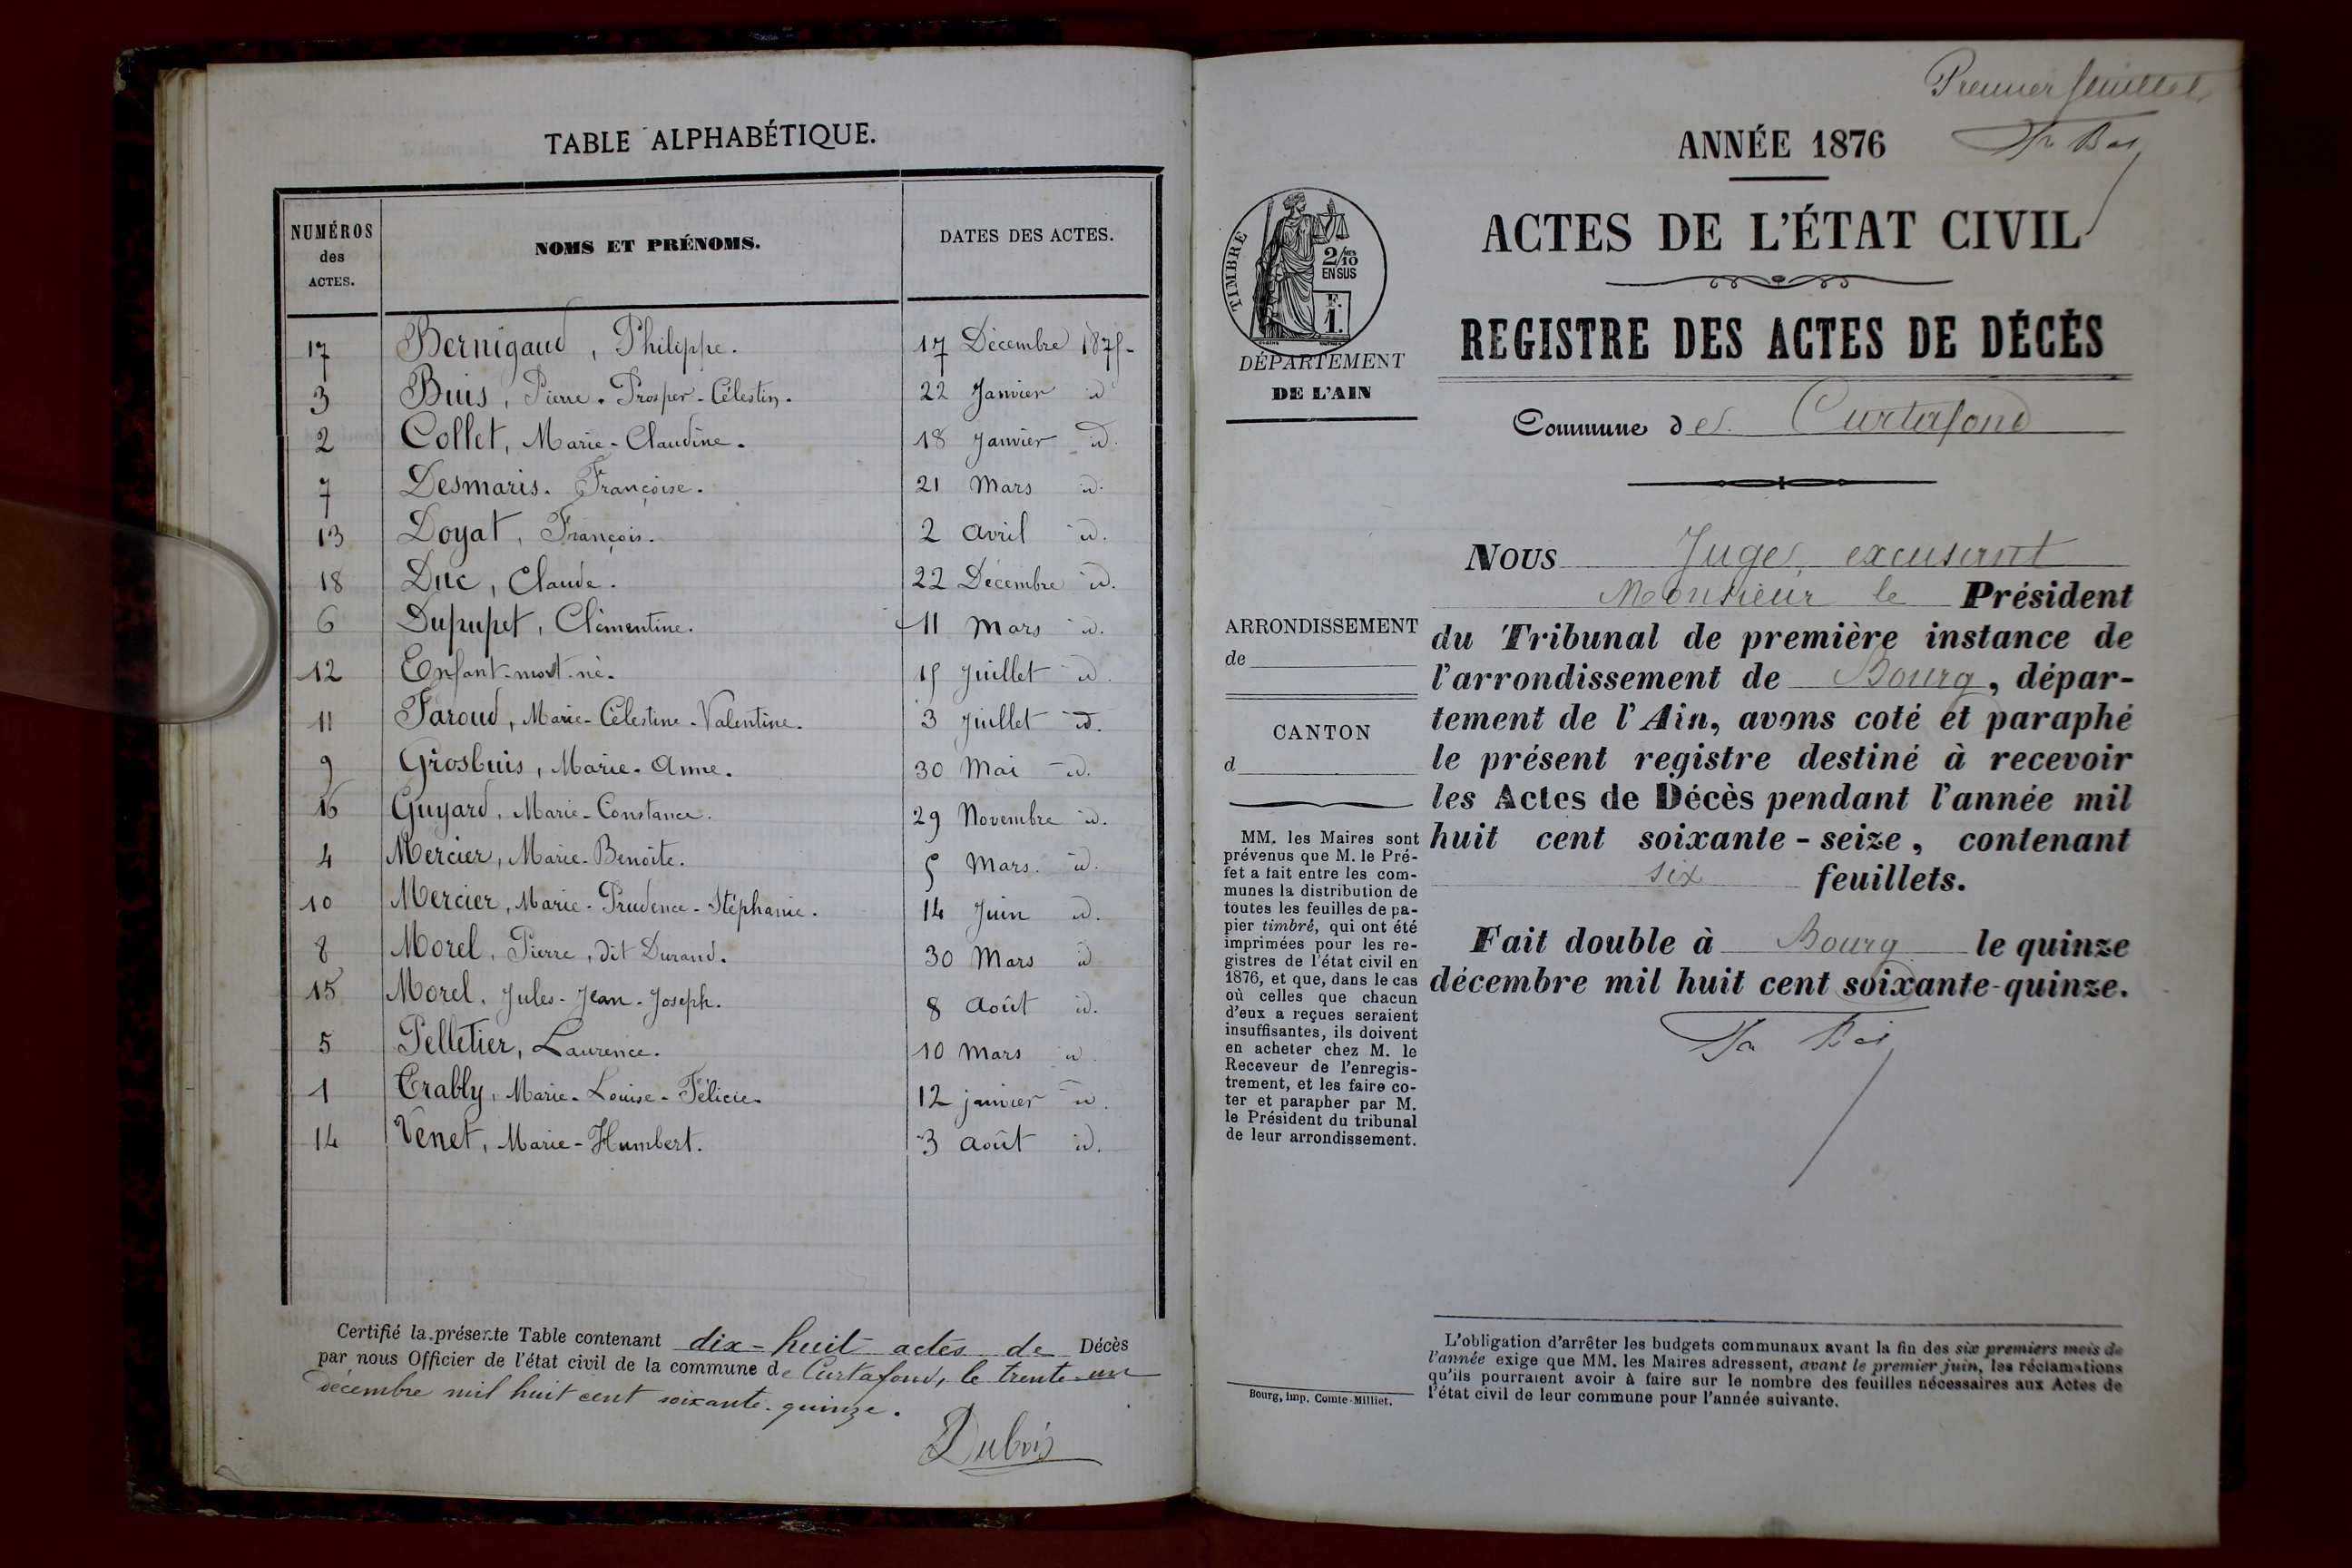 TABLE ALPHABÉTIQUE.
NUMÉROS des ACTES. NOMS ET PRÉNOMS. DATES DES ACTES.
17 Bernigaud, Philippe. 17 Décembre 1875-
3 Buis, Pierre-Prosper-Célestin. 22 Janvier id
2 Collet, Marie-Claudine. 18 Janvier id.
7 Desmaris. Françoise. 21 Mars id.
13 Doyat, François. 2 avril id.
18 Duc, Claude. 22 Décembre id.
6 Dupupet, Clémentine. 11 Mars id.
12 Enfant-mort-né. 15 Juillet id.
11 Faroud, Marie-Célestine-Valentine. 3 Juillet id.
9 Grosbuis, Marie-Anne. 30 Mai id.
16 Guyard, Marie-Constance. 29 Novembre id.
4 Mercier, Marie-Benoite. 5 Mars. id.
10 Mercier, Marie-Prudence-Stéphanie. 14 Juin id.
8 Morel, Pierre, dit Durand. 30 Mars id
15 Morel, Jules-Jean-Joseph. 8 Août id.
5 Pelletier, Laurence. 10 Mars id.
1 Trably, Marie-Louise-Félicie. 12 janvier id.
14 Venet, Marie-Humbert. 3 Août id.
Certifié la présente Table contenant dix-huit actes de Décès
par nous Officier de l'état civil de la commune de Curtafond, le trente-un
décembre mil huit cent soixante-quinze.
Dubois
Premier feuillet
ANNÉE 1876
ACTES DE L'ÉTAT CIVIL
REGISTRE DES ACTES DE DÉCÈS
TIMBRE
2/10
EN SUS
F.
1.
DÉPARTEMENT
DE L'AIN
Commune de Curtafond
Nous Juge, excusant
Monsieur le Président
du Tribunal de première instance de
l'arrondissement de Bourg, dépar-
tement de l'Ain, avons coté et paraphé
le présent registre destiné à recevoir
les Actes de Décès pendant l'année mil
huit cent soixante-seize, contenant
six feuillets.
Fait double à Bourg le quinze
décembre mil huit cent soixante-quinze.
ARRONDISSEMENT
de
CANTON
d
MM. les Maires sont
prévenus que M. le Pré-
fet a fait entre les com-
munes la distribution de
toutes les feuilles de pa-
pier timbré, qui ont été
imprimées pour les re-
gistres de l'état civil en
1876, et que, dans le cas
où celles que chacun
d'eux a reçues seraient
insuffisantes, ils doivent
en acheter chez M. le
Receveur de l'enregis-
trement, et les faire co-
ter et parapher par M.
le Président du tribunal
de leur arrondissement.
Bourg, imp. Comte-Milliet.
L'obligation d'arrêter les budgets communaux avant la fin des six premiers mois de
l'année exige que MM. les Maires adressent, avant le premier juin, les réclamations
qu'ils pourraient avoir à faire sur le nombre des feuilles nécessaires aux Actes de
l'état civil de leur commune pour l'année suivante.